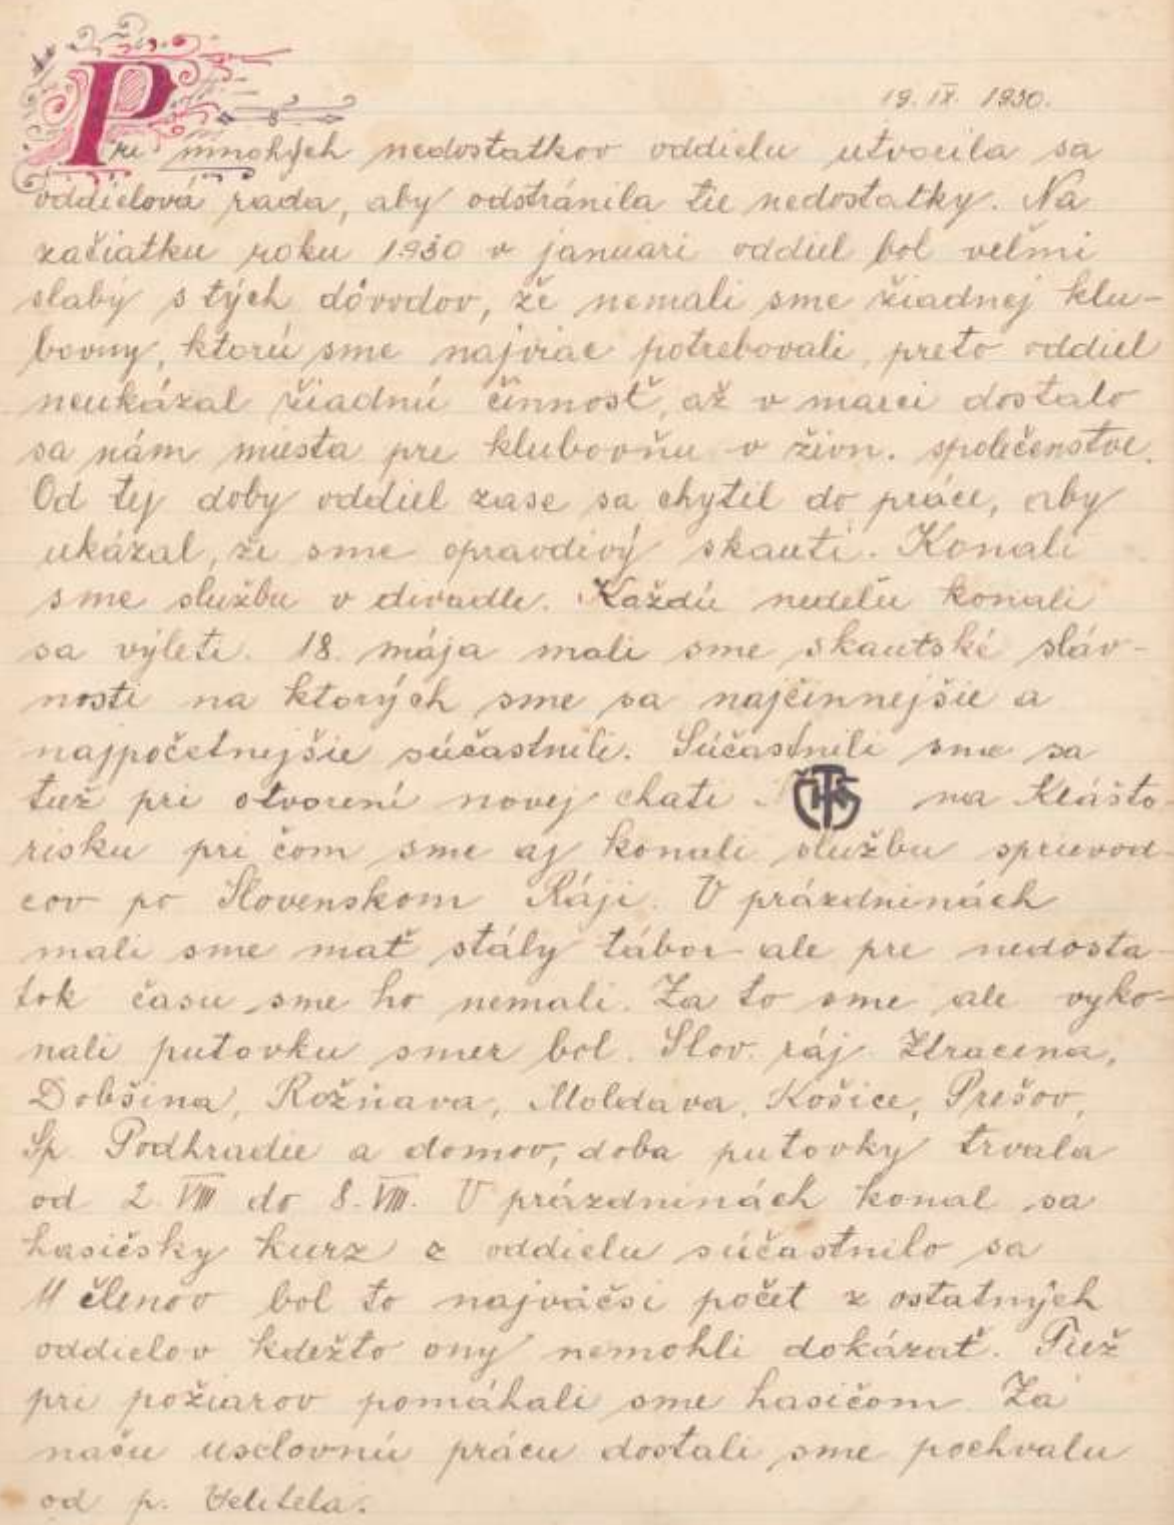 19. IX. 1930.
Pri mnohých nedostatkov oddielu utvorila sa
oddielová rada, aby odstránila tie nedostatky. Na
začiatku roku 1930 v januari oddiel bol veľmi
slabý s tých dôvodov, že nemali sme žiadnej klu-
bovny, ktorú sme najviac potrebovali, preto oddiel
neukázal žiadnú činnosť, až v marci dostalo
sa nám miesta pre klubovňu v živn. společenstve.
Od tej doby oddiel zase sa chytil do práce, aby
ukázal, že sme opravdivý skauti. Konali
sme službu v divadle. Každú nedeľu konali
sa výleti. 18. mája mali sme skautské sláv-
nosti na ktorých sme sa najčinnejšie a
najpočetnejšie súčastnili. Súčastnili sme sa
tiež pri otvorení novej chati KČST na Klášto
risku pri čom sme aj konali službu sprievod-
cov po Slovenskom Ráji. V prázdninách
mali sme mať stály tábor ale pre nedosta-
tok času sme ho nemali. Za to sme ale vyko-
nali putovku smer bol. Slov. ráj. Ztracena,
Dobšina, Rožňava, Moldava, Košice, Prešov,
Sp. Podhradie a domov, doba putovky trvala
od 2. VIII do 8. VIII. V prázdninách konal sa
hasičsky kurz z oddielu súčastnilo sa
11 členov bol to najväčsi počet z ostatných
oddielov kdežto ony nemohli dokázať. Tiež
pri požiarov pomáhali sme hasičom. Za
našu usilovnú prácu dostali sme pochvalu
od p. Veliteľa.